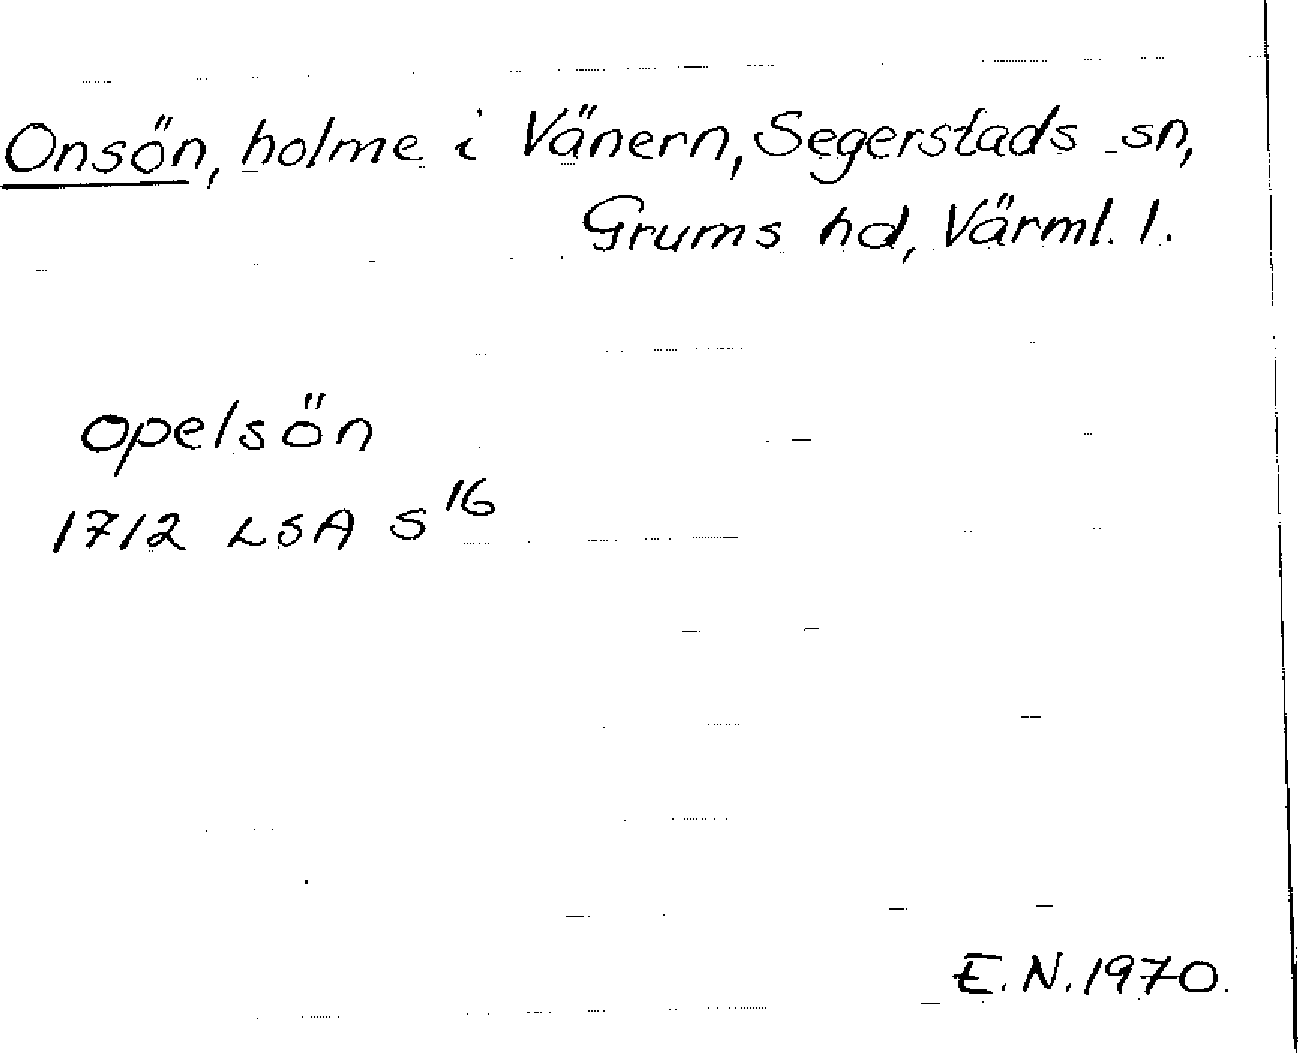 Onsön, holme i Vänern, Segerstads sn,
Grums hd, Värml. l.
opelsön
1712 LSA S16
E.N. 1970.